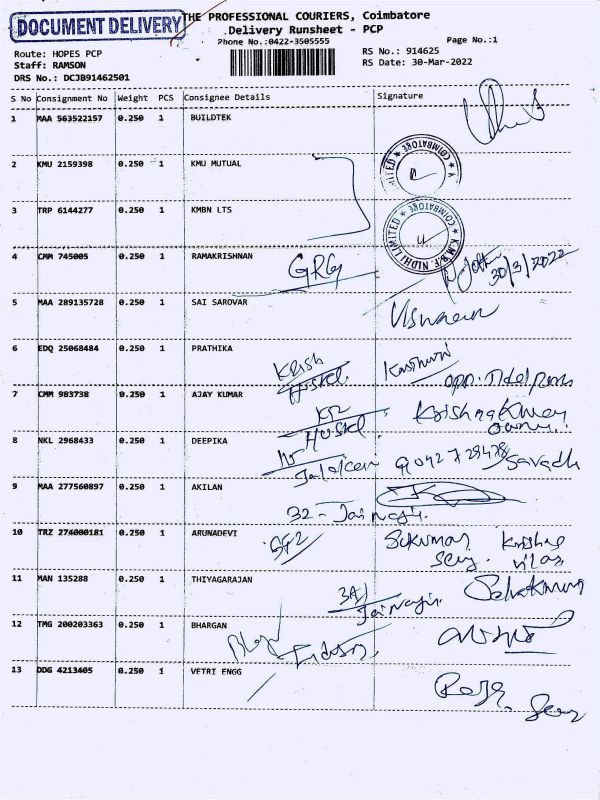 DOCUMENT DELIVERY
THE PROFESSIONAL COURIERS, Coimbatore
Delivery Runsheet - PCP
Phone No.:0422-3505555
Page No.:1
Route: HOPES PCP
RS No.: 914625
Staff: RAMSON
RS Date: 30-Mar-2022
DRS No.: DCJB91462501
S No Consignment No Weight PCS Consignee Details Signature
1 MAA 563522157 0.250 1 BUILDTEK
2 KMU 2159398 0.250 1 KMU MUTUAL
COIMBATORE
3 TRP 6144277 0.250 1 KMBN LTS
K.M.B.F. NIDHI LIMITED ★ COIMBATORE ★
4 CMM 745005 0.250 1 RAMAKRISHNAN
GRG 30/3/2022
5 MAA 289135728 0.250 1 SAI SAROVAR
6 EDQ 25068484 0.250 1 PRATHIKA
Krish
Hostel opp. Tidel
7 CMM 983738 0.250 1 AJAY KUMAR
Hostel
8 NKL 2968433 0.250 1 DEEPIKA
9 MAA 277560897 0.250 1 AKILAN
32 -
10 TRZ 274000181 0.250 1 ARUNADEVI
Sukumar
11 MAN 135288 0.250 1 THIYAGARAJAN
3A)
12 TMG 200203363 0.250 1 BHARGAN
13 DDG 4213405 0.250 1 VETRI ENGG